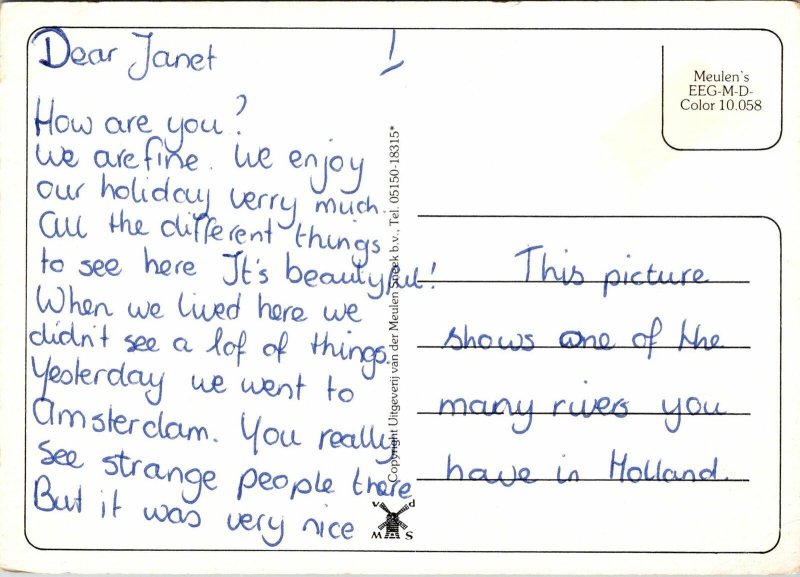 Dear Janet !
How are you?
We are fine. We enjoy
our holiday verry much.
All the different things
to see here It's beautyful!
When we lived here we
didn't see a lot of things.
Yesterday we went to
Amsterdam. You really
see strange people there
But it was very nice
Copyright Uitgeverij van der Meulen Sneek b.v., Tel. 05150-18315*
v d
M S
Meulen's
EEG-M-D-
Color 10.058
This picture
shows one of the
many rivers you
have in Holland.